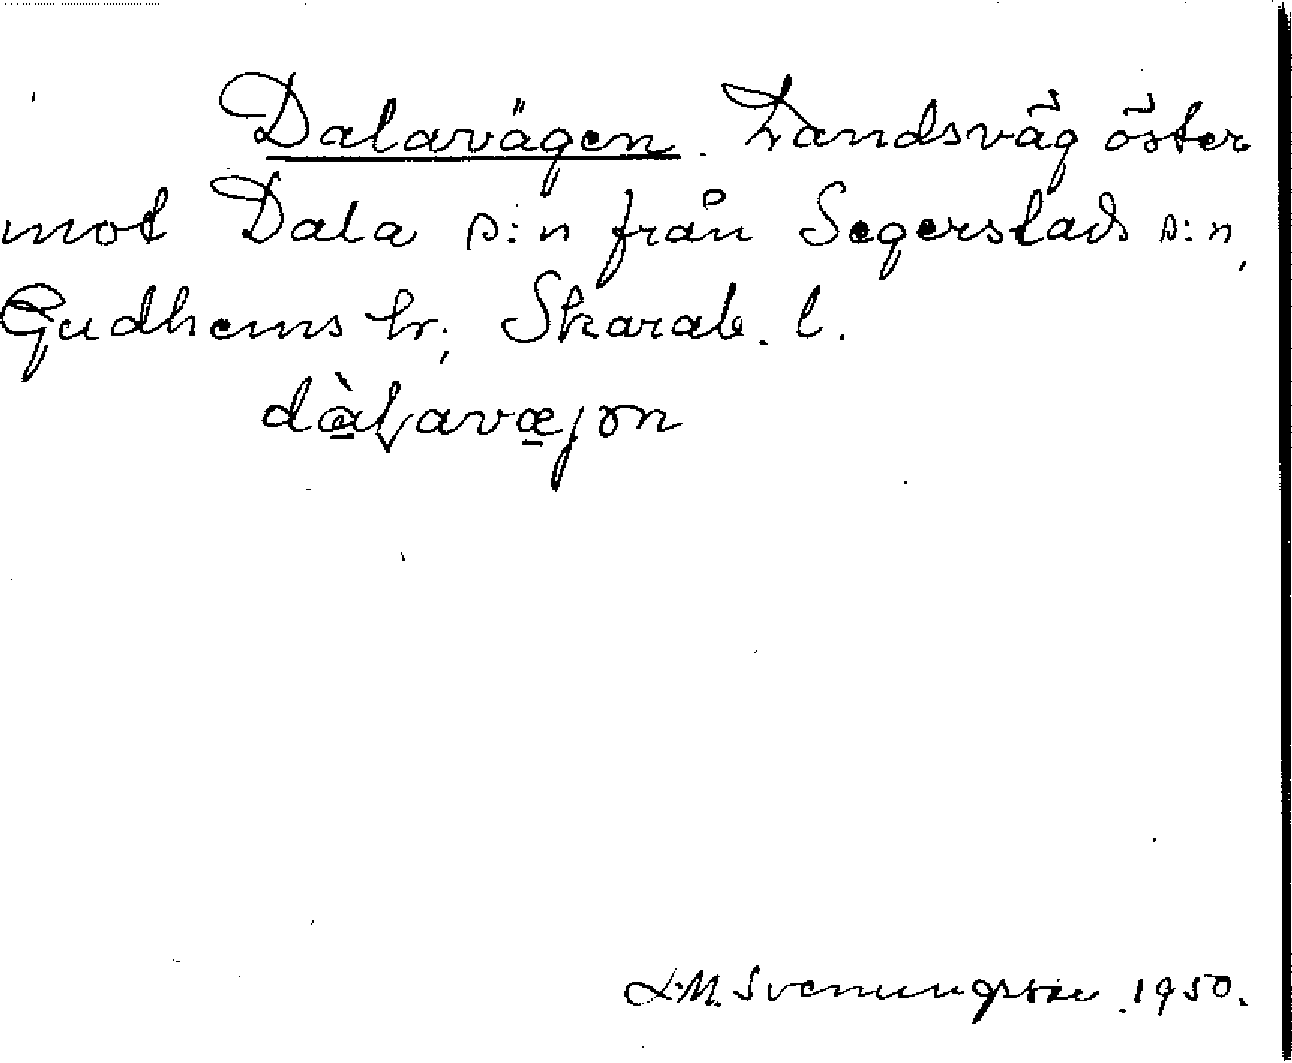 Dalavägen. Landsväg öster
mot Dala s:n från Segerstads s:n,
Gudhems hr, Skarab. l.
dàlavæjən
L.M. Svenungsson. 1950.